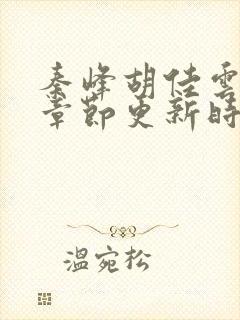 秦峰胡佳雲
章節更新時
溫宛松